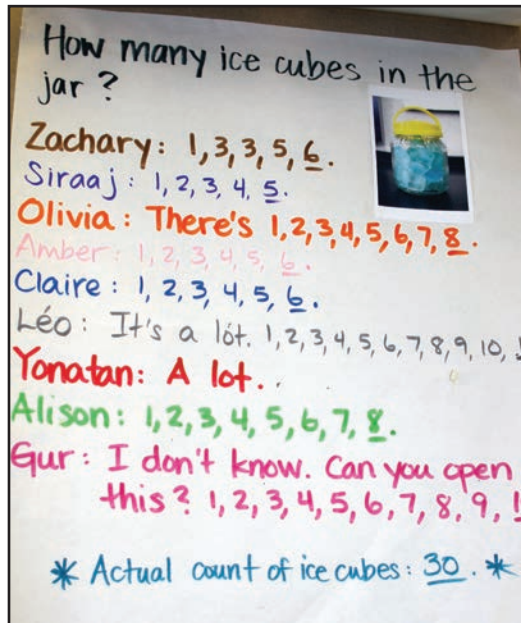 How many ice cubes in the
jar?
Zachary: 1,3,3,5,6.
Siraaj: 1,2,3,4,5.
Olivia: There's 1,2,3,4,5,6,7,8.
Amber: 1,2,3,4,5,6.
Claire: 1,2,3,4,5,6.
Léo: It's a lot. 1,2,3,4,5,6,7,8,9,10,
Yonatan: A lot.
Alison: 1,2,3,4,5,6,7,8.
Gur: I don't know. Can you open
this? 1,2,3,4,5,6,7,8,9,
* Actual count of ice cubes: 30. *